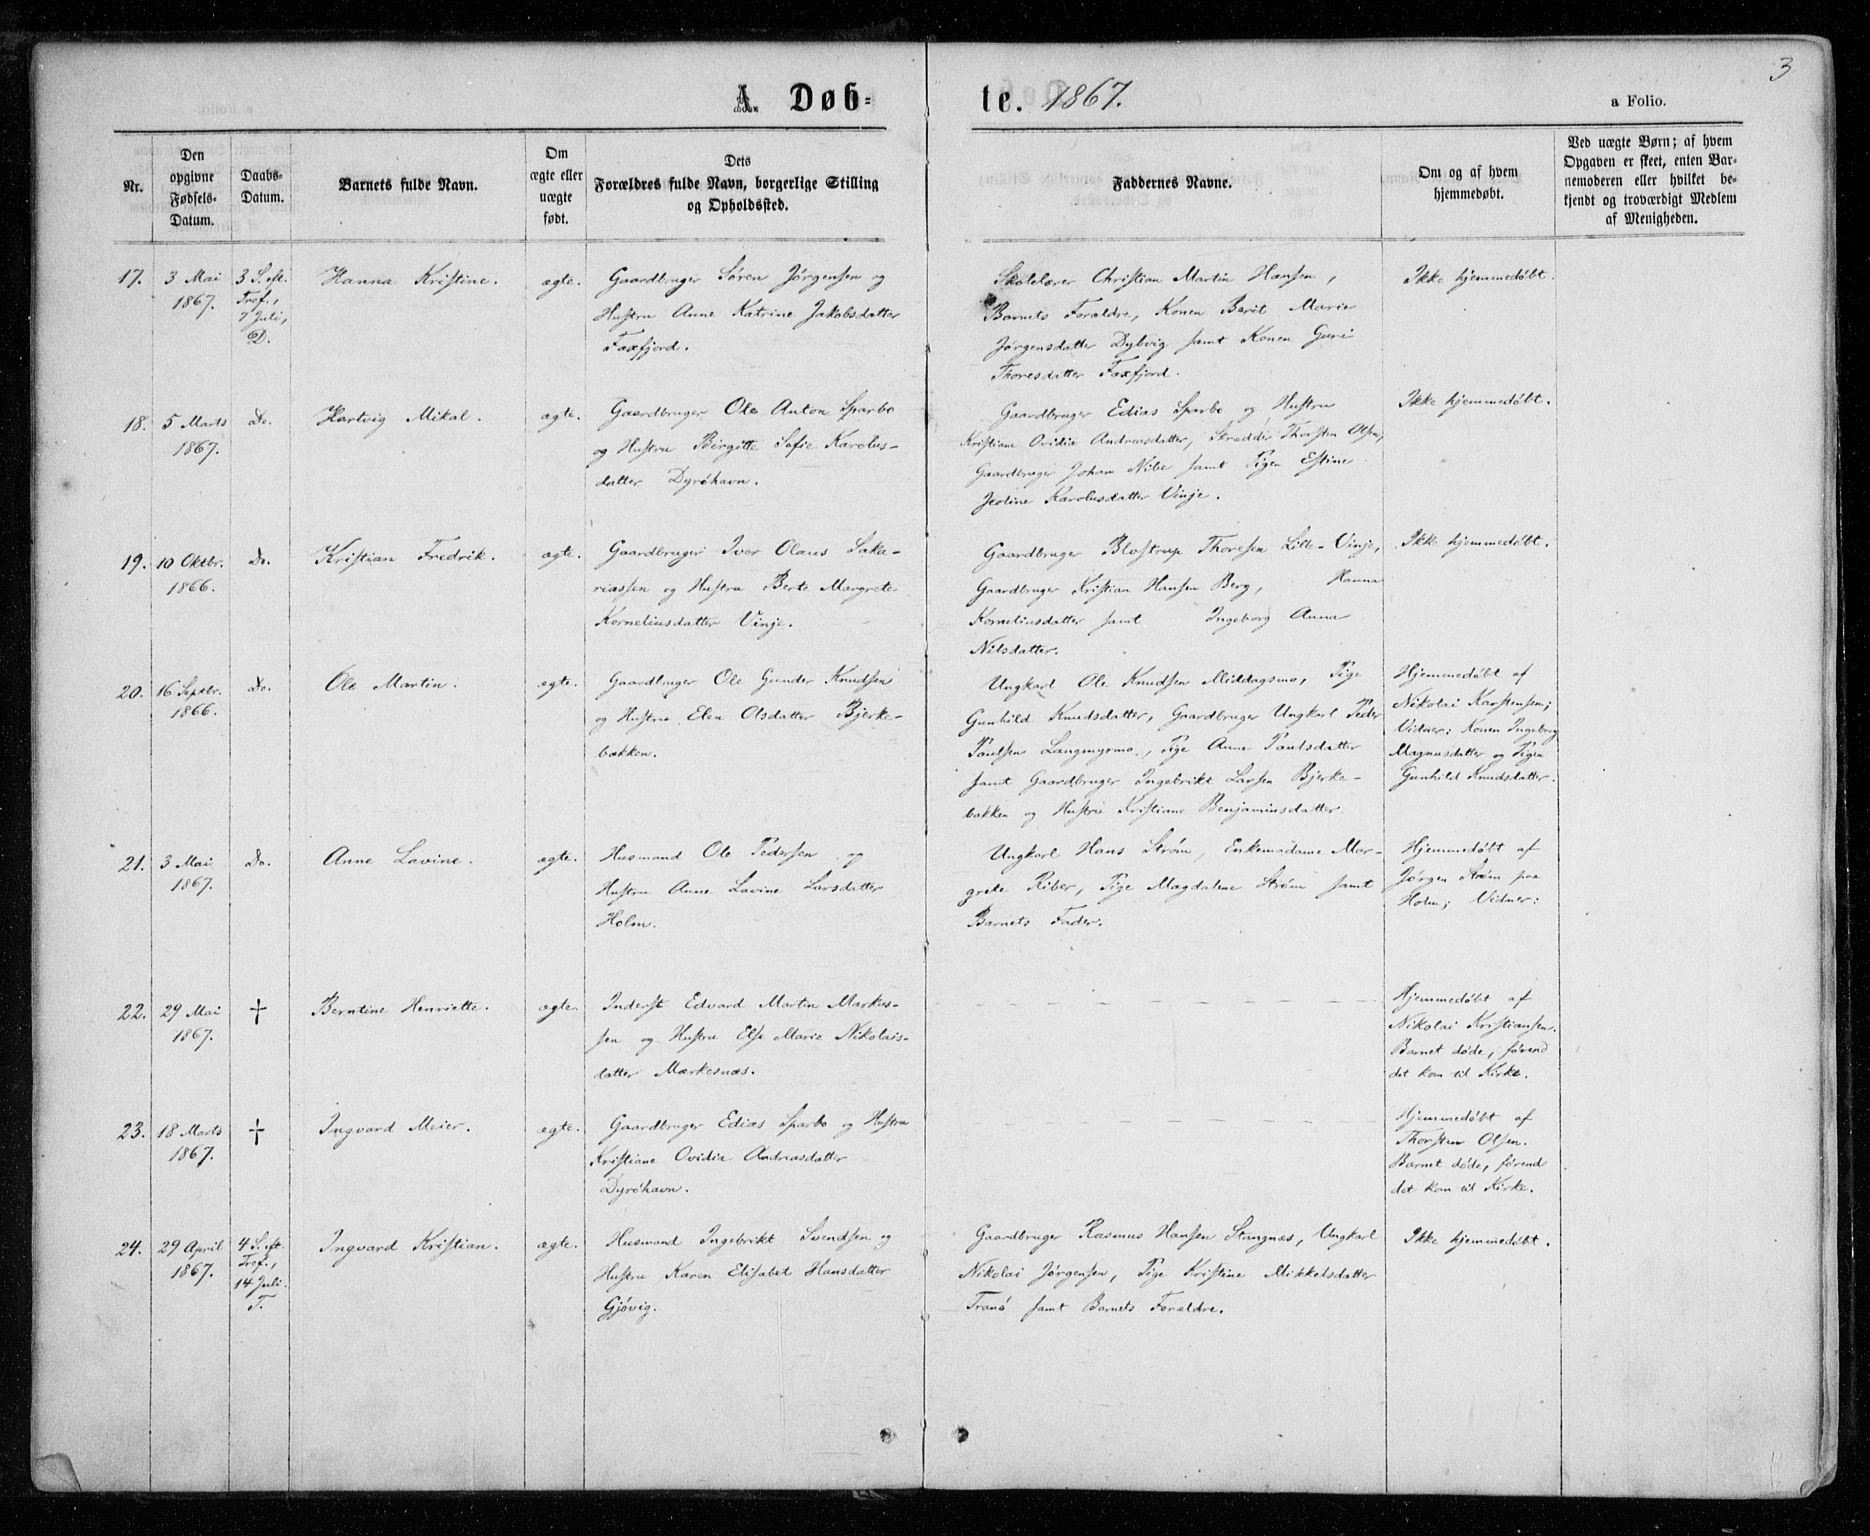 3
A. Døb-te. 1867.
a Folio.
Nr.
Den opgivne Fødsels-Datum.
Daabs-Datum.
Barnets fulde Navn.
Om ægte eller uægte født.
Dets Forældres fulde Navn, borgerlige Stilling og Opholdssted.
Faddernes Navne.
Om og af hvem hjemmedøbt.
Ved uægte Børn; af hvem Opgaven er skeet, enten Barnemoderen eller hvilket bekjendt og troværdigt Medlem af Menigheden.
17.
3 Mai
1867.
3 S. eft.
Tref.,
7 Juli,
D.
Hanna Kristine.
ægte.
Gaardbruger Søren Jørgensen og
Hustru Anne Katrine Jakobsdatter
Faxfjord.
Skolelærer Christian Martin Hansen,
Barnets Forældre, Konen Berit Marie
Jørgensdatter Dybvig samt Konen Guri
Thoresdatter Faxfjord.
Ikke hjemmedøbt.
18.
5 Marts
1867.
Do.
Hartvig Mikal.
ægte.
Gaardbruger Ole Anton Sparbo
og Hustru Birgitte Sofie Karolus-
datter Dyröhavn.
Gaardbruger Edias Sparbo og Hustru
Kristian Ovidie Andreasdatter, Skrædder Thorsten Olsen,
Gaardbruger Johan Nibe samt Pigen Estine
Jeoline Karolusdatter Vinje.
Ikke hjemmedøbt.
19.
10 Oktbr.
1866.
Do.
Kristian Fredrik.
ægte.
Gaardbruger Iver Olaus Saka-
riassen og Hustru Berte Margrete
Korneliusdatter Vinje.
Gaardbruger Blostrup Thoresen Lille-Vinje,
Gaardbruger Kristian Hansen Berg, Hanna
Korneliusdatter samt Ingeborg Anna
Nilsdatter.
Ikke hjemmedøbt.
20.
16 Septbr.
1866.
Do.
Ole Martin.
ægte.
Gaardbruger Ole Gunder Knudsen
og Hustru Elen Olsdatter Bjerke-
bakken.
Ungkarl Ole Knudsen Middagsmo, Pige
Gunhild Knudsdatter, Gaardbruger Ungkarl Peder
Paulsen Langmyrmo, Pige Anne Paulsdatter
samt Gaardbruger Ingebrikt Larsen Bjerke-
bakken og Hustru Kristiane Benjaminsdatter.
Hjemmedøbt af
Nikolai Karstensen;
Vidner: Konen Ingeborg
Magnusdatter og Pigen
Gunhild Knudsdatter.
21.
3 Mai
1867.
Do.
Anne Lavine.
ægte.
Husmand Ole Pedersen og
Hustru Anne Lavine Larsdatter
Holm.
Ungkarl Hans Strøm, Enkemadame Mar-
grete Riber, Pige Magdalene Strøm samt
Barnets Fader.
Hjemmedøbt af
Jørgen Strøm paa
Holm; Vidner:
22.
29 Mai
1867.
†
Berntine Henriette.
ægte.
Inderst Edvard Martin Markus-
sen og Hustru Else Marie Nikolais-
datter Mærkesnæs.
Hjemmedøbt af
Nikolai Kristiansen.
Barnet døde, førend
det kom til Kirke.
23.
18 Marts
1867.
†
Ingvard Meier.
ægte.
Gaardbruger Edias Sparbo og Hustru
Kristiane Ovidia Andreasdatter
Dyröhavn.
Hjemmedøbt af
Thorsten Olsen.
Barnet døde, førend
det kom til Kirke.
24.
29 April
1867.
4 S. eft.
Tref.,
14 Juli.
T.
Ingvard Kristian.
ægte.
Husmand Ingebrikt Svendsen og
Hustru Karen Elisabet Hansdatter
Gjövig.
Gaardbruger Rasmus Hansen Stangnæs, Ungkarl
Nikolai Jørgensen, Pige Kristine Mikkelsdatter
Tranö samt Barnets Forældre.
Ikke hjemmedøbt.